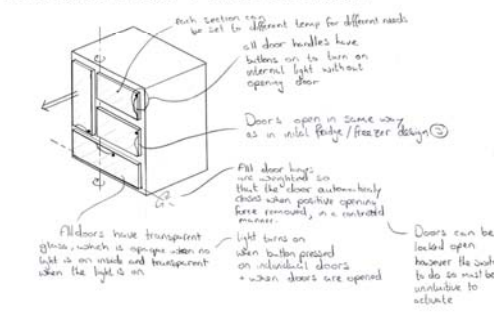 Each section can
be set to different temp for different needs
all door handles have
buttons on to turn on
internal light without
opening door
Doors open in same way
as in inital fridge/freezer design ②
All door hinges
are weighted so
that the door automatically
closes when positive opening
force removed, in a controlled
manner.
All doors have transparent
glass, which is opaque when no
light is on inside and transparent
when the light is on
light turns on
when button pressed
on individual doors
+ when doors are opened
Doors can be
locked open
however the
to do so must be
unintuitive to
activate